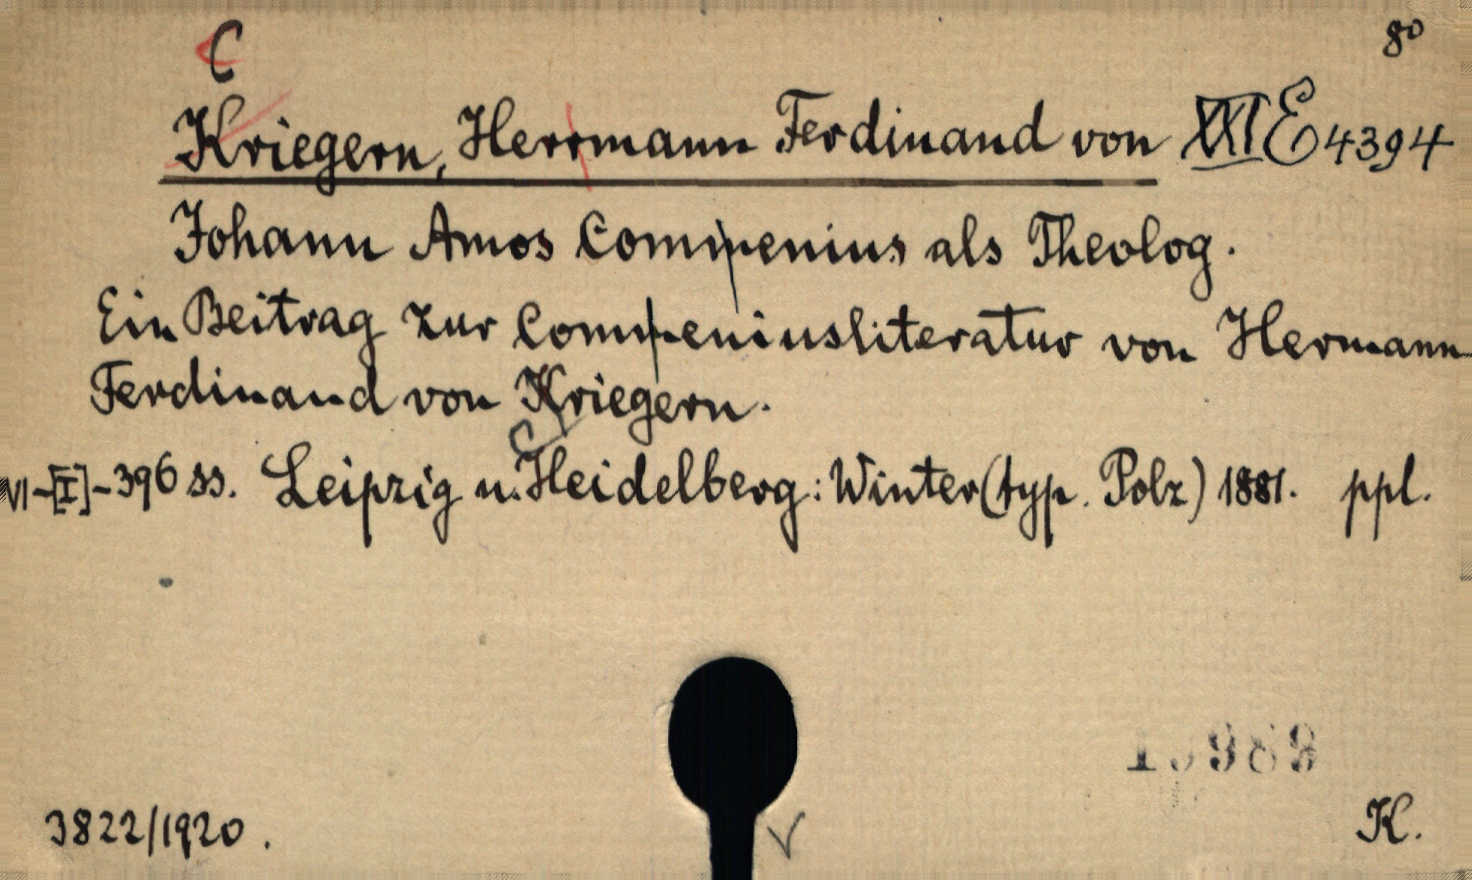 C
8°
Kriegern, Herrmann Ferdinand von XXI E 4394
Johann Amos Commenius als Theolog.
Ein Beitrag zur Commeniusliteratur von Hermann
Ferdinand von Kriegern.
C
VI-[I]-396 ss. Leipzig u. Heidelberg: Winter (typ. Polz) 1881. ppl.
3822/1920.
K.